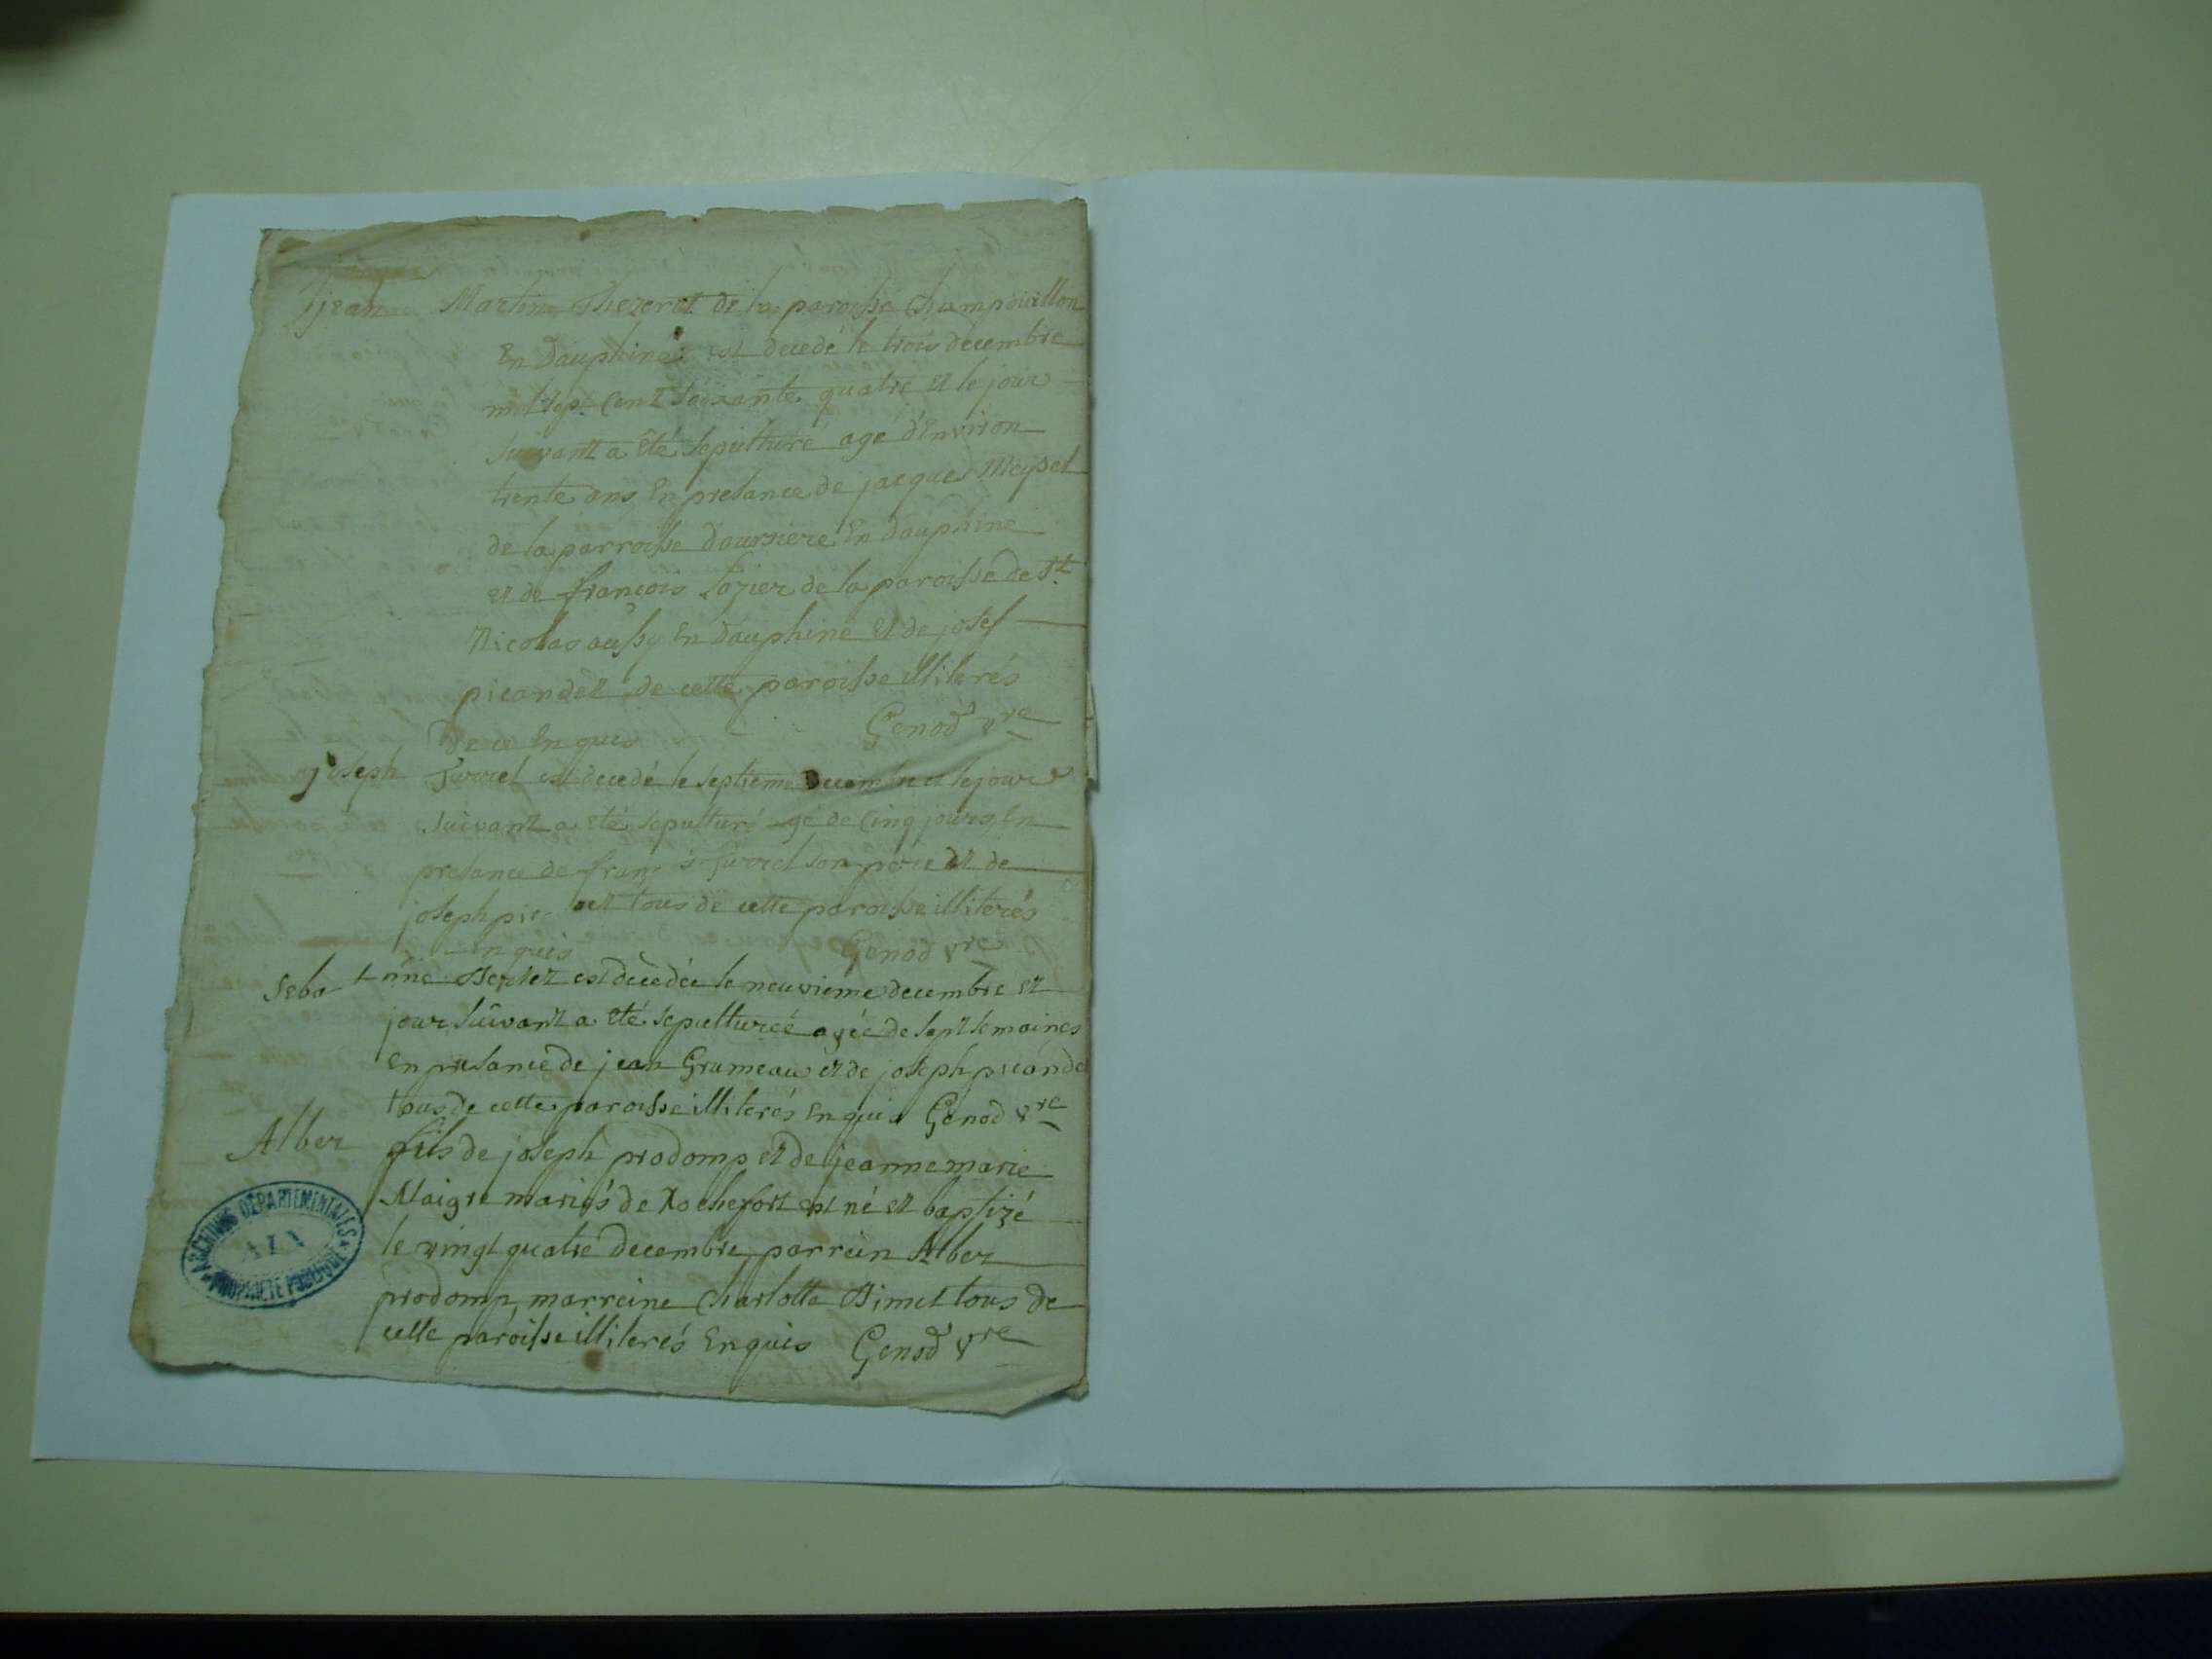 jean Martin Thezerat de la paroisse Champouillon
En Dauphiné est decedé le trois decembre
mil sept cent soixante quatre et le jour
suivant a été sepulturé agé d'Environ
trente ans En presance de jacques Meyset
de la parroisse doursiere En dauphine
et de françois Lozier de la paroisse de St
Nicolas aussy En Dauphine et de josef
picandet de cette paroisse illiterés
de ce Enquis Genod vre
joseph Furret est decedé le septieme Decembre et le jour
suivant a eté sepulturé gé de Cinq jours En
presance de fran s Furret son pere et de
joseph pic et tous de cette paroisse illiterés
Enquis Genod vre
Seba nne est decedée le neuvieme decembre et
jour suivant a eté sepulturéé agée de sept semaines
en presance de jean Grumeau et de joseph picande
tous de cette paroisse illiterés Enquis Genod vre
Alber fils de joseph prodomp et de jeanne marie
Maigre mariés de Rochefort est né et baptizé
le vingt quatre decembre, parrein Alber
prodomp, marreine Charlotta Bimet tous de
cette paroisse illiterés Enquis Genod vre
ARCHIVES DEPARTEMENTALES
AIN
PROPRIETE PUBLIQUE